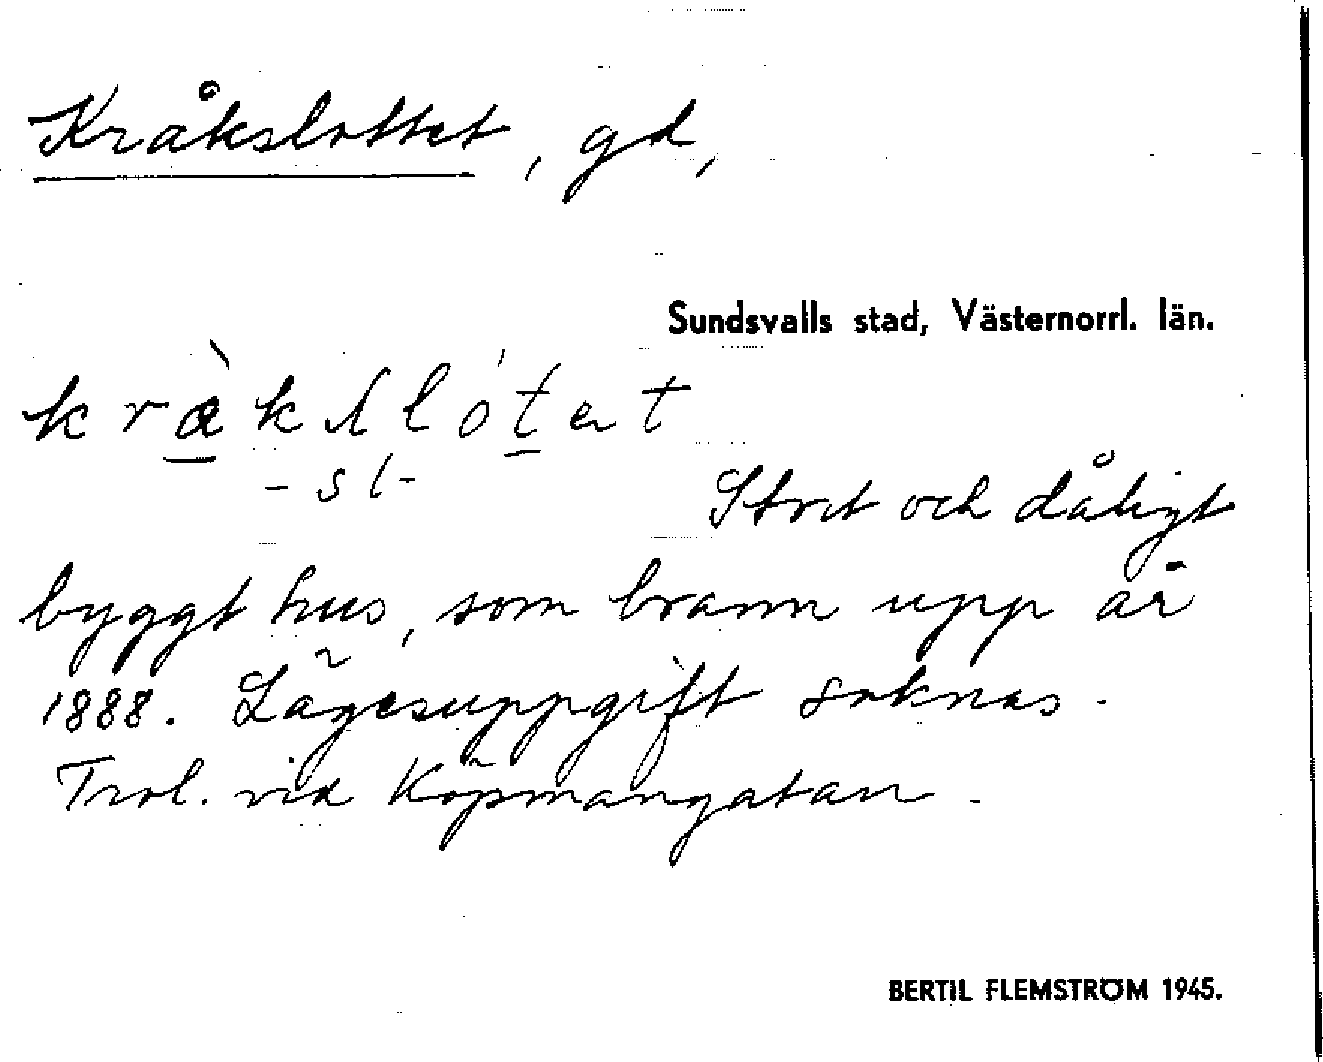 Kråkslottet, gd,
Sundsvalls stad, Västernorrl. län.
-sl-
Stort och dåligt
byggt hus, som brann upp år
1888. Lägesuppgift saknas.
Trol. vid Köpmangatan.
BERTIL FLEMSTRÖM 1945.